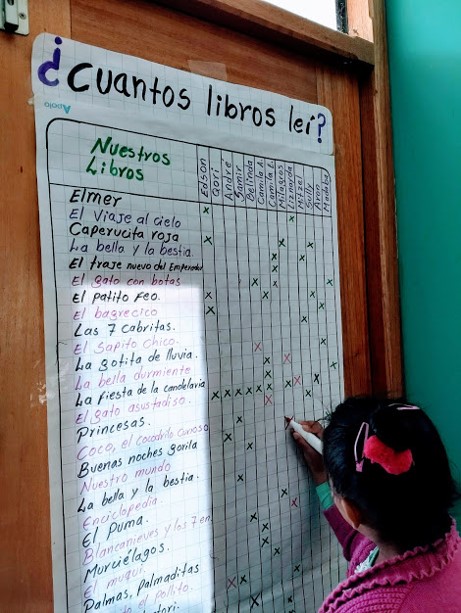 ¿Cuantos libros leí?
Apolo
Nuestros
Libros
Edson
Qori
Andre
Samir
Belinda
Camila A.
Camila E.
Milagros
Liznarda
Mitzel
Sully
Aron
Elmer
El Viaje al cielo
Caperucita roja
La bella y la bestia.
El traje nuevo del Emperador
El gato con botas
El patito Feo.
El bagrecico
Las 7 Cabritas.
El Sapito Chico.
La gotita de lluvia.
La bella durmiente.
La fiesta de la candelaria
El gato asustadiso.
Princesas.
Coco, el cocodrilo curioso
Buenas noches gorila
Nuestro mundo
La bella y la bestia.
Enciclopedia
El Puma.
Blancanieves y los 7 en
Murciélagos.
El muqui.
Palmas, Palmaditas
el pollito.